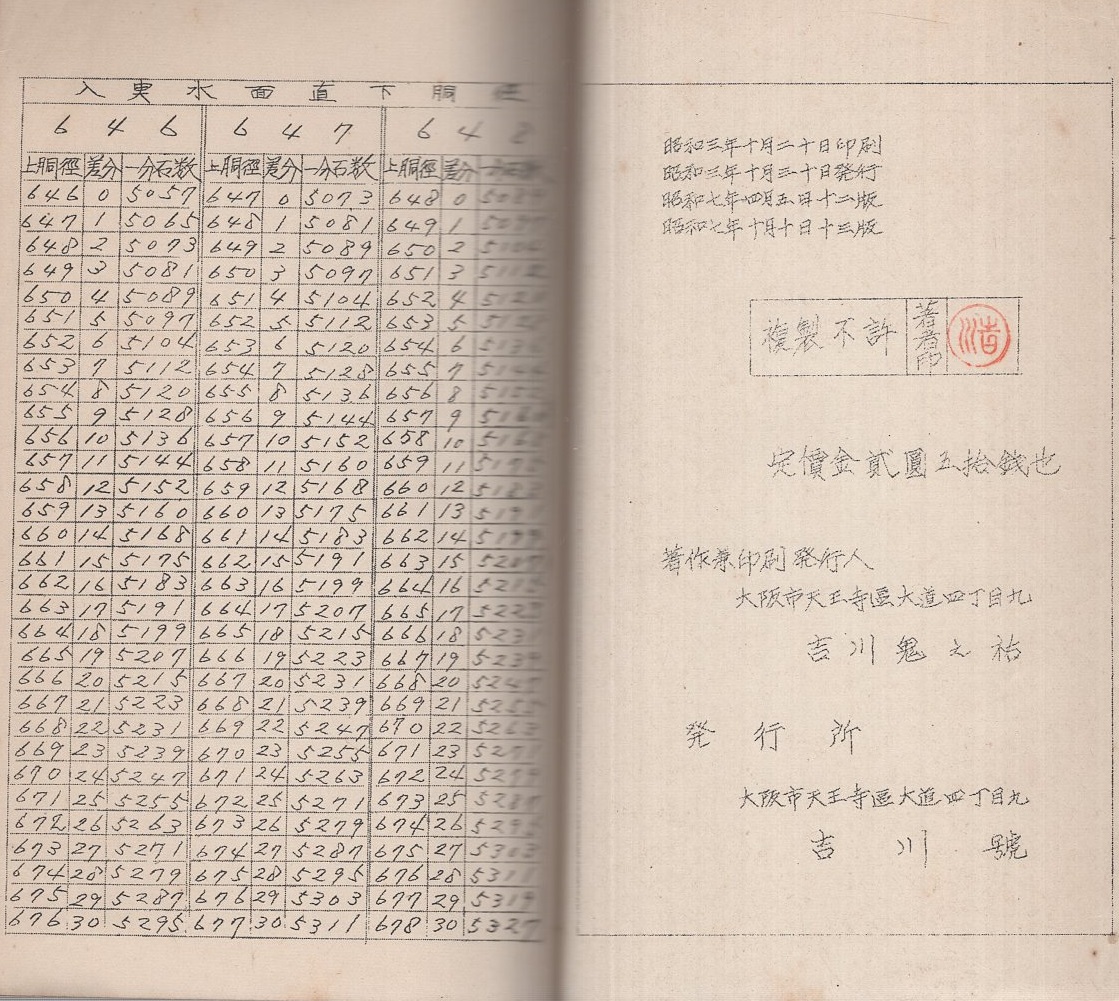 入実水面直下胴徑
646 647 648
上胴徑 差分 一分石数 上胴徑 差分 一分石数 上胴徑 差分 一分石数
646 0 5057 647 0 5073 648 0
647 1 5065 648 1 5081 649 1
648 2 5073 649 2 5089 650 2 5104
649 3 5081 650 3 5097 651 3 5112
650 4 5089 651 4 5104 652 4
651 5 5097 652 5 5112 653 5
652 6 5104 653 6 5120 654 6
653 7 5112 654 7 5128 655 7
654 8 5120 655 8 5136 656 8 5152
655 9 5128 656 9 5144 657 9 5160
656 10 5136 657 10 5152 658 10
657 11 5144 658 11 5160 659 11 5175
658 12 5152 659 12 5168 660 12 5183
659 13 5160 660 13 5175 661 13 5191
660 14 5168 661 14 5183 662 14 5199
661 15 5175 662 15 5191 663 15 5207
662 16 5183 663 16 5199 664 16 5215
663 17 5191 664 17 5207 665 17 5223
664 18 5199 665 18 5215 666 18 5231
665 19 5207 666 19 5223 667 19 5239
666 20 5215 667 20 5231 668 20 5247
667 21 5223 668 21 5239 669 21 5255
668 22 5231 669 22 5247 670 22 5263
669 23 5239 670 23 5255 671 23 5271
670 24 5247 671 24 5263 672 24 5279
671 25 5255 672 25 5271 673 25 5287
672 26 5263 673 26 5279 674 26 5295
673 27 5271 674 27 5287 675 27 5303
674 28 5279 675 28 5295 676 28 5311
675 29 5287 676 29 5303 677 29 5319
676 30 5295 677 30 5311 678 30 5327
昭和三年十月二十日印刷
昭和三年十月三十日発行
昭和七年四月五日十二版
昭和七年十月十日十三版
複製不許 著者印
定價金貳圓五拾錢也
著作兼印刷発行人
大阪市天王寺區大道四丁目九
吉川鬼之祐
発行所
大阪市天王寺區大道四丁目九
吉川號